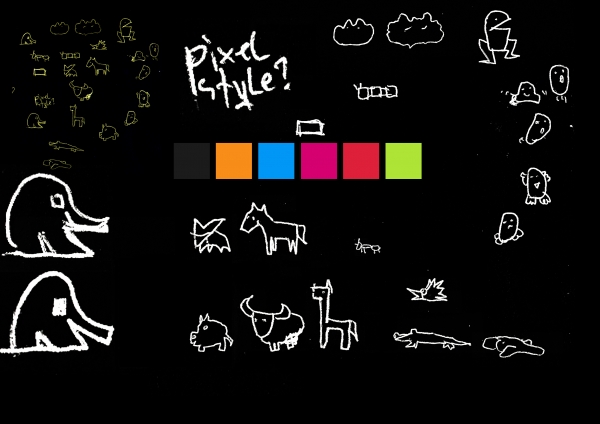 pixel
style?